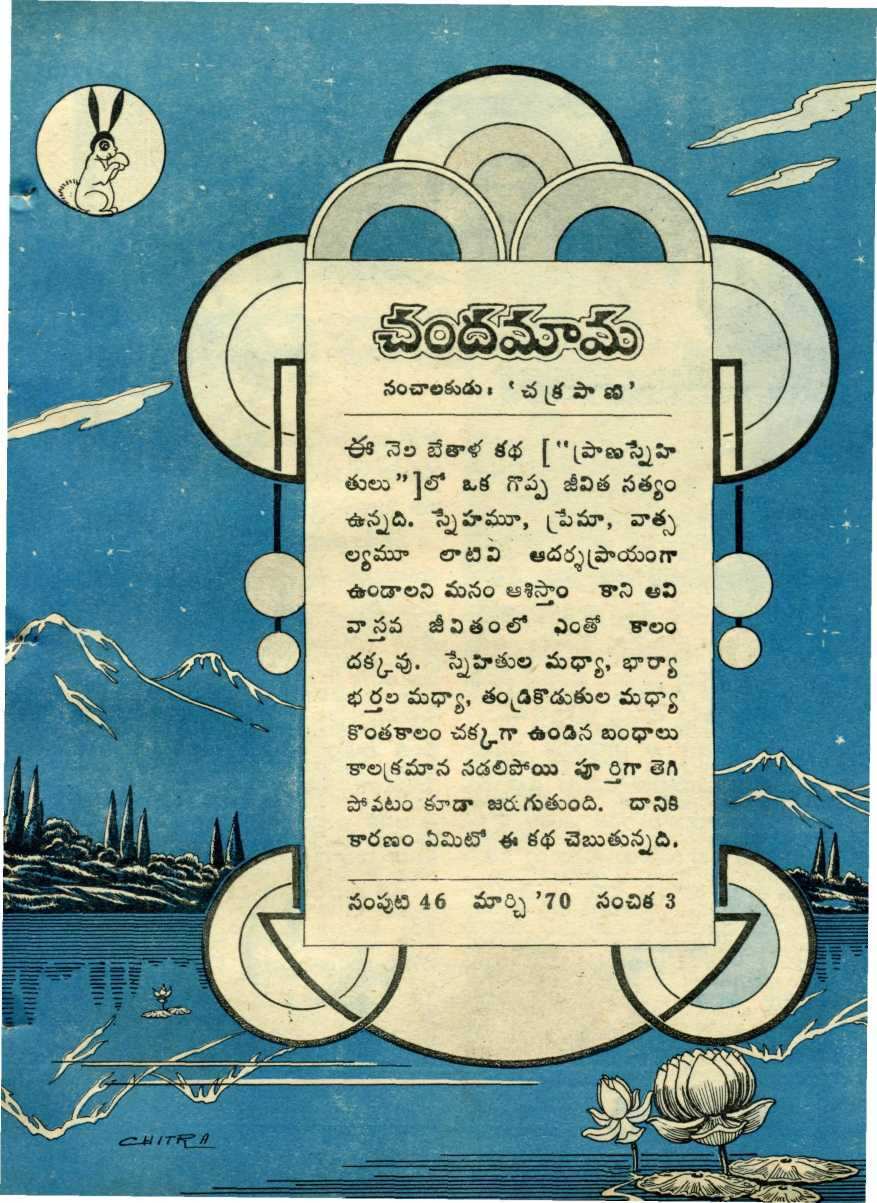 చందమామ
సంచాలకుడు: 'చక్రపాణి'
ఈ నెల బేతాళ కథ ["ప్రాణస్నేహి
తులు"]లో ఒక గొప్ప జీవిత సత్యం
ఉన్నది. స్నేహమూ, ప్రేమా, వాత్స
ల్యమూ లాటివి ఆదర్శప్రాయంగా
ఉండాలని మనం ఆశిస్తాం కాని అవి
వాస్తవ జీవితంలో ఎంతో కాలం
దక్కవు. స్నేహితుల మధ్యా, భార్యా
భర్తల మధ్యా, తండ్రికొడుకుల మధ్యా
కొంతకాలం చక్కగా ఉండిన బంధాలు
కాలక్రమాన సడలిపోయి పూర్తిగా తెగి
పోవటం కూడా జరుగుతుంది. దానికి
కారణం ఏమిటో ఈ కథ చెబుతున్నది.
సంపుటి 46 మార్చి '70 సంచిక 3
CHITRA